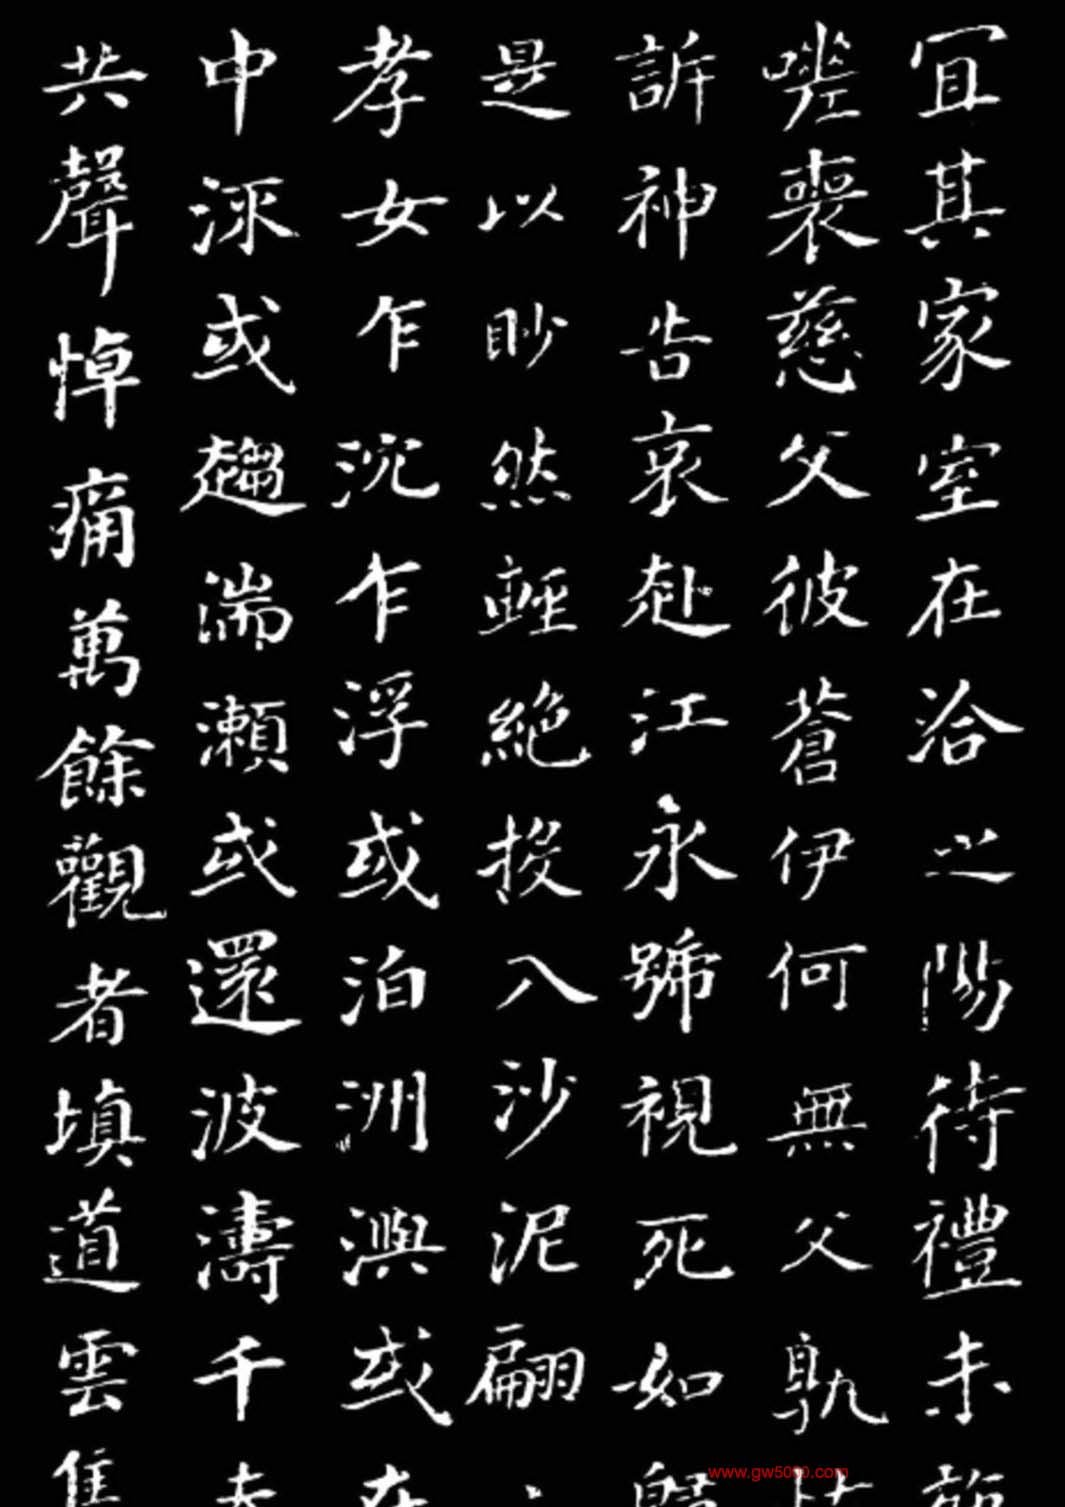 宜其家室在洽之陽待禮未施
嗟喪慈父彼蒼伊何無父孰怙
訴神告哀赴江永號視死如歸
是以眇然輕絕投入沙泥翩
孝女乍沈乍浮或泊洲嶼或在
中流或趨湍瀨或還波濤千夫
共聲悼痛萬餘觀者填道雲集
www.gw5000.com